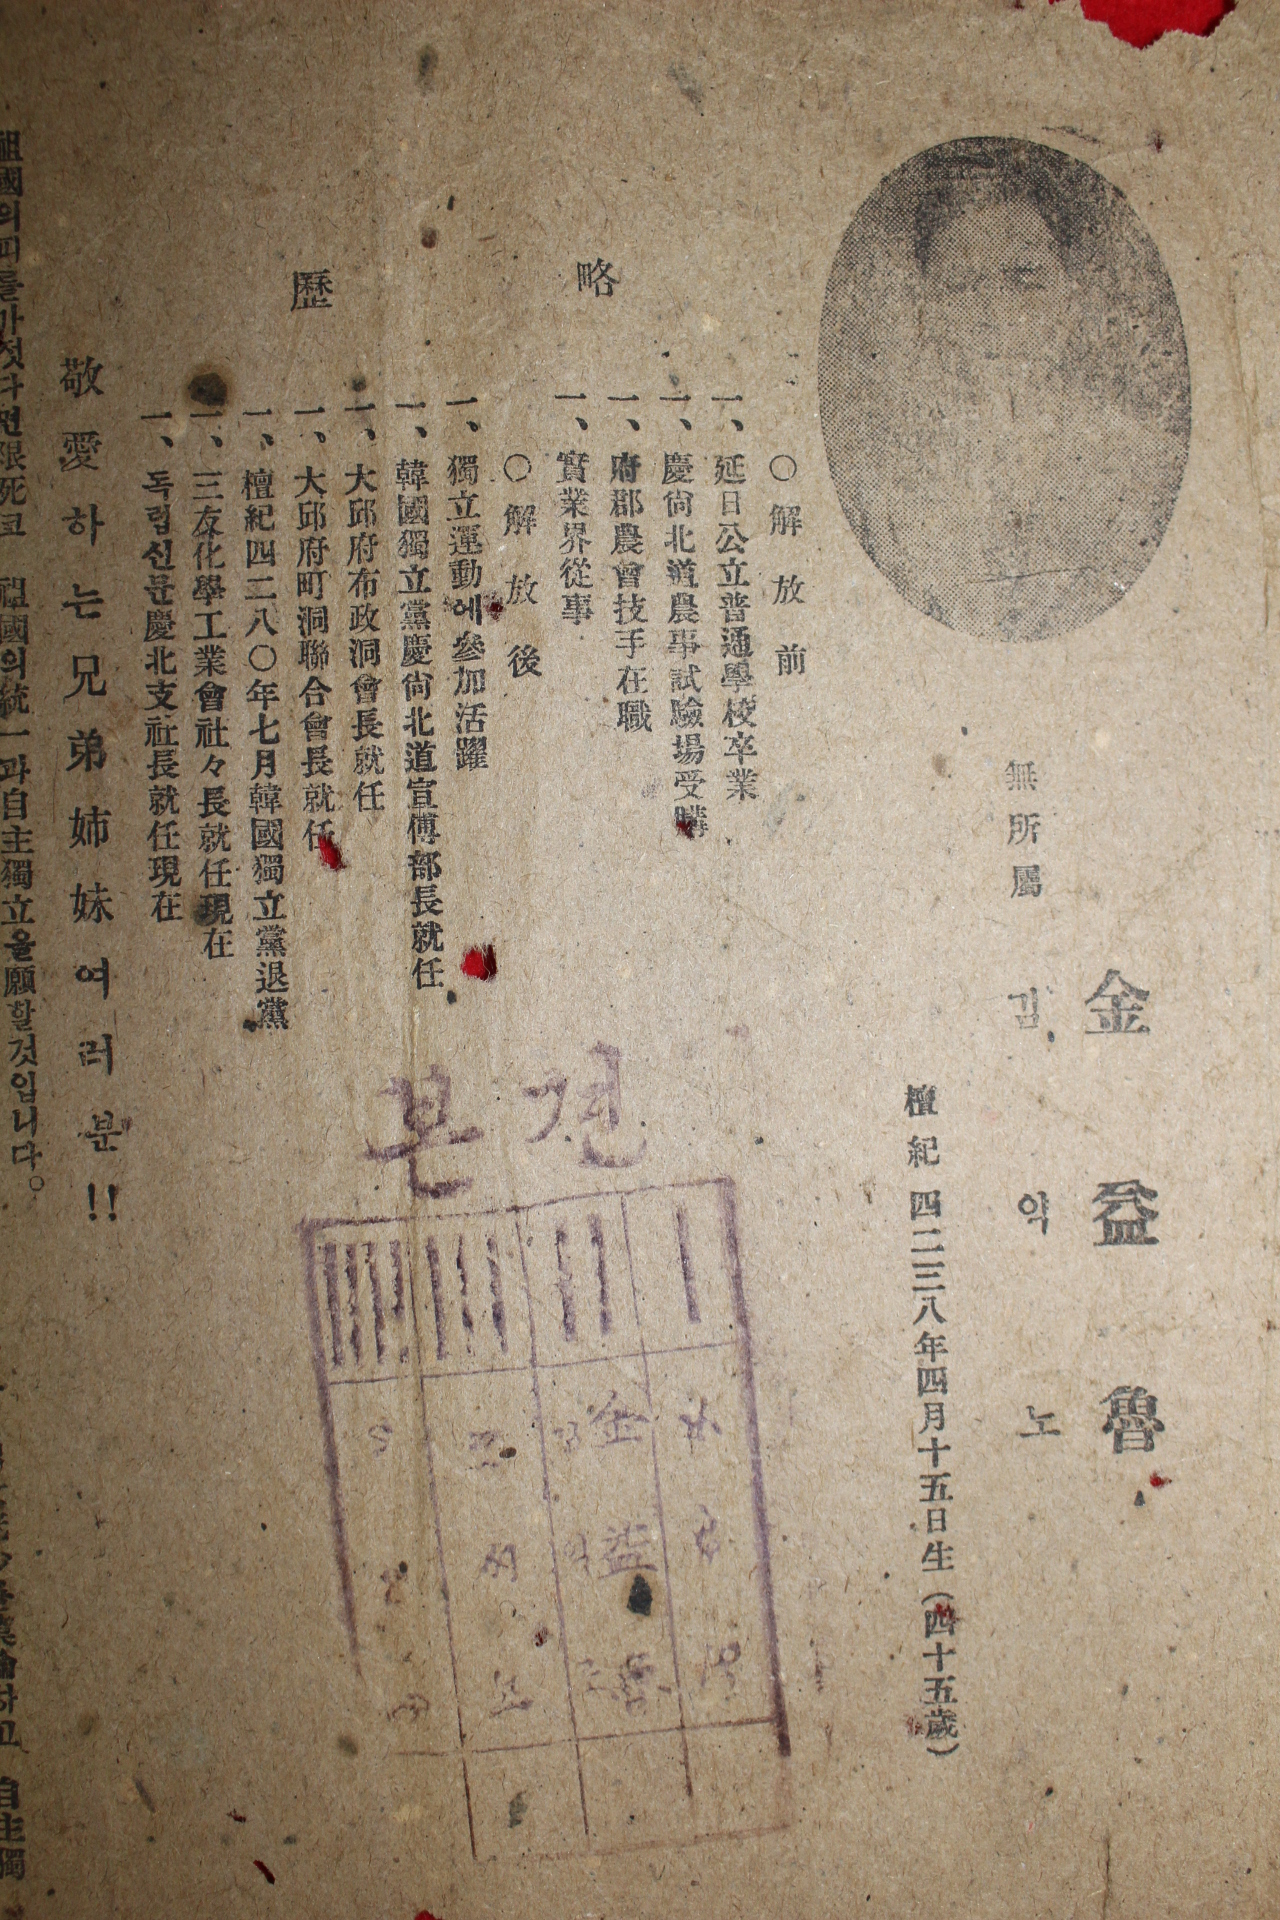 金益魯
無所屬 김 악 노
檀紀 四二三八年四月十五日生(四十五歲)
略歷
○解放前
一、延日公立普通學校卒業
一、慶尙北道農事試驗場受講
一、府郡農會技手在職
一、實業界從事
○解放後
一、獨立運動에參加活躍
一、韓國獨立黨慶尙北道宣傳部長就任
一、大邱府布政洞會長就任
一、大邱府町洞聯合會長就任
一、檀紀四二八〇年七月韓國獨立黨退黨
一、三友化學工業會社々長就任現在
一、독립신문慶北支社長就任現在
敬愛하는兄弟姉妹여러분!!
祖國의피를가젓다면限死코 祖國의統一과自主獨立을願할것입니다。
견본
金益魯